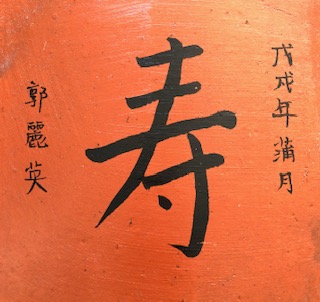 戊戌年蒲月
寿
郭麗英